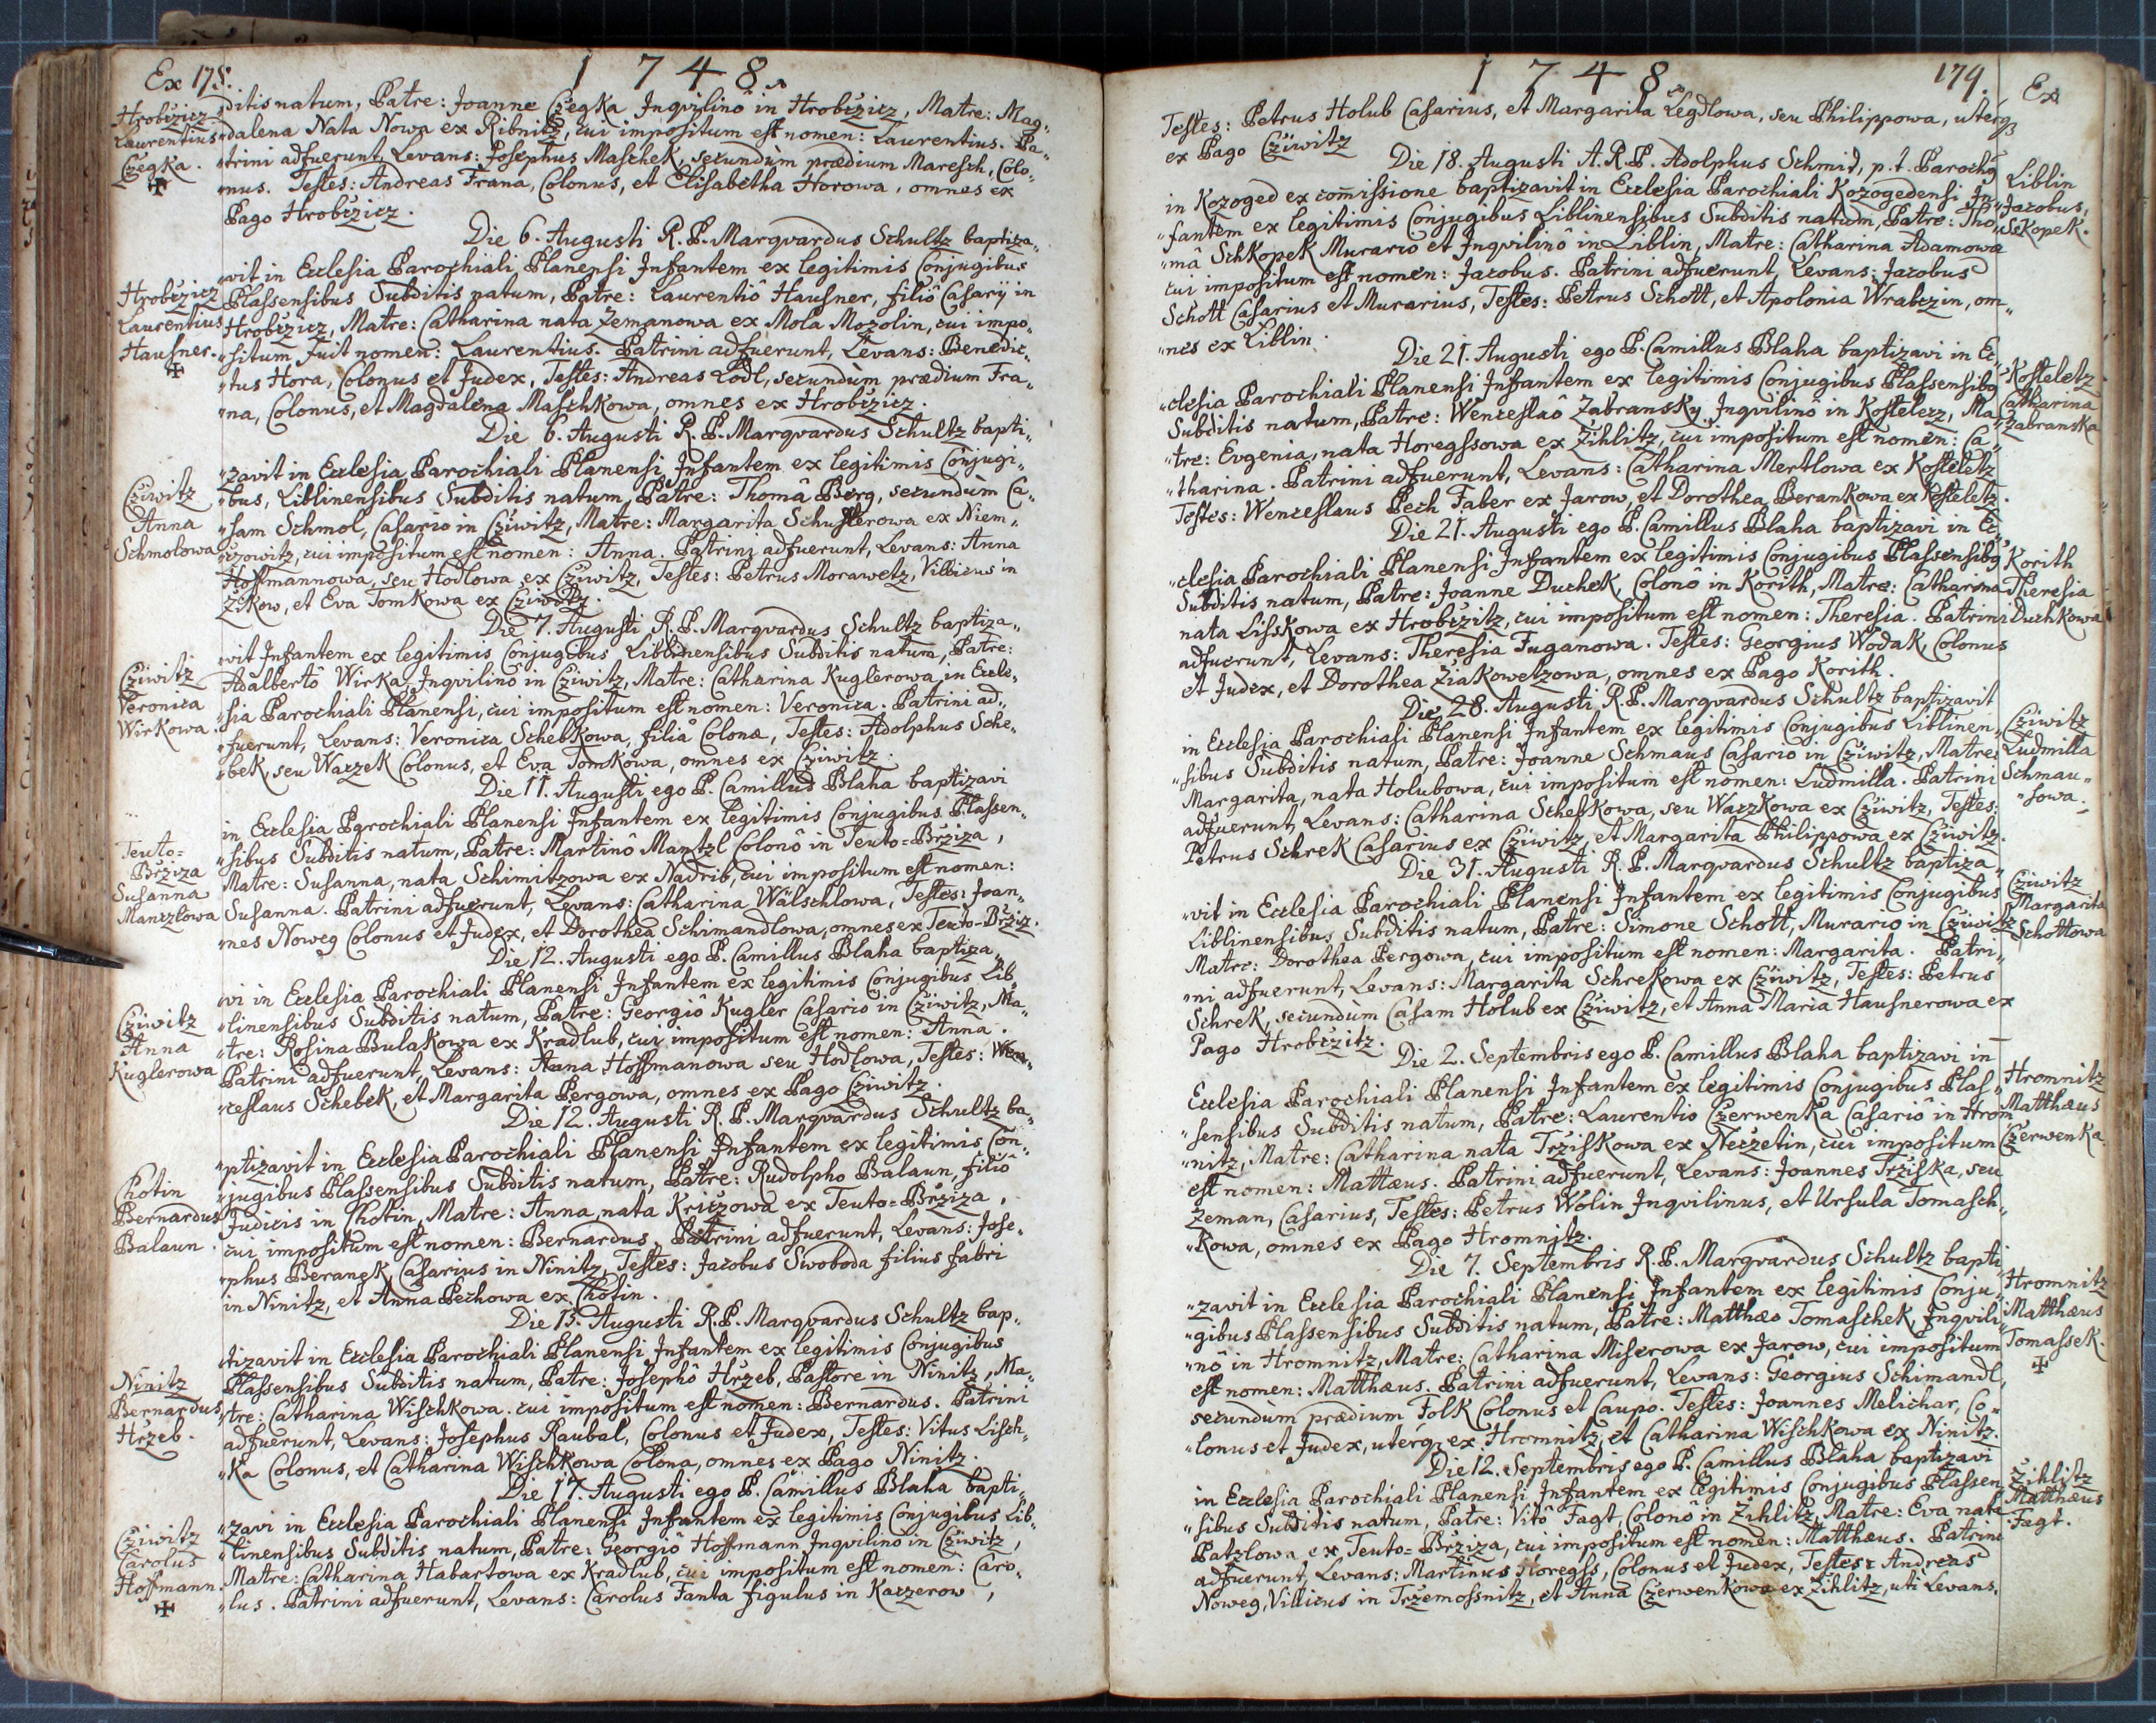 Ex 178.
1748.
Hrobczicz
Laurentius
Czegka.
ditis natum, Patre: Joanne Czegka Inqvilinô in Hrobczicz, Matre: Mag„
„dalena Nata Nowa ex Ribnitz, cui impositum est nomen: Laurentius. Pa„
„trini adfuerunt, Levans: Josephus Maschek, secundùm prædium Maresch, Colo„
„nus. Testes: Andreas Frana, Colonus, et Elisabetha Horowa, omnes ex
Pago Hrobczicz.
Die 6. Augusti R. P. Marqvardus Schultz baptiza„
Hrobczicz
Laurentius
Hausner.
„vit in Ecclesia Parochiali Planensi Infantem ex legitimis Conjugibus
Plassensibus Subditis natum, Patre: Laurentiô Hausner, filiô Casarij in
Hrobczicz, Matre: Catharina nata Zemanowa ex Mola Mozolin, cui impo„
„situm fuit nomen: Laurentius. Patrini adfuerunt, Levans: Benedic„
„tus Hora, Colonus et Judex, Testes: Andreas Lodl, secundùm prædium Fra„
„na, Colonus, et Magdalena Maschkowa, omnes ex Hrobczicz.
Die 6. Augusti R. P. Marqvardus Schultz bapti„
Cziwitz
Anna
Schmolowa
„zavit in Ecclesia Parochiali Planensi Infantem ex legitimis Conjugi„
„bus, Liblinensibus Subditis natum, Patre: Thomâ Berg, secundùm Ca„
„sam Schmol, Casario in Cziwitz, Matre: Margarita Schusterowa ex Niem„
„czowitz, cui impositum est nomen: Anna. Patrini adfuerunt, Levans: Anna
Hoffmannowa, seu Hodlowa ex Cziwitz, Testes: Petrus Morawetz, Villicus in
Zikow, et Eva Tomkowa ex Cziwitz.
Die 7. Augusti R. P. Marqvardus Schultz baptiza„
Cziwitz
Veronica
Wirkowa
„vit Infantem ex legitimis Conjugibus Liblinensibus Subditis natum, Patre:
Adalbertô Wirka, Inqvilinô in Cziwitz, Matre: Catharina Kuglerowa, in Eccle„
„sia Parochiali Planensi, cui impositum est nomen: Veronica. Patrini ad„
„fuerunt, Levans: Veronica Schebkowa, filia Colona, Testes: Adolphus Sche„
„bek, seu Waczek Colonus, et Eva Tomkowa, omnes ex Cziwitz.
Die 11. Augusti ego P. Camillus Blaha baptizavi
Teuto=
Brziza
Susanna
Manczlowa
in Ecclesia Parochiali Planensi Infantem ex legitimis Conjugibus Plassen„
„sibus Subditis natum, Patre: Martinô Mantzl Colonô in Teuto=Brziza,
Matre: Susanna, nata Schimitzowa ex Nadrib, cui impositum est nomen:
Susanna. Patrini adfuerunt, Levans: Catharina Wälschlowa, Testes: Joan„
„nes Noweg Colonus et Judex, et Dorothea Schimandlowa, omnes ex Teuto-Brziz.
Die 12. Augusti ego P. Camillus Blaha baptiza„
Cziwitz
Anna
Kuglerowa
„vi in Ecclesia Parochiali Planensi Infantem ex legitimis Conjugibus Lib„
„linensibus Subditis natum, Patre: Georgiô Kugler Casario in Cziwitz, Ma„
„tre: Rosina Bulakowa ex Kradlub, cui impositum est nomen: Anna.
Patrini adfuerunt, Levans: Anna Hoffmanowa seu Hodlowa, Testes: Wen„
„ceslaus Schebek, et Margarita Pergowa, omnes ex Pago Cziwitz.
Die 12. Augusti R. P. Marqvardus Schultz ba„
Chotin
Bernardus
Balaun.
„ptizavit in Ecclesia Parochiali Planensi Infantem ex legitimis Con„
„jugibus Plassensibus Subditis natum, Patre: Rudolpho Balaun, filiô
Judicis in Chotin, Matre: Anna, nata Kriczowa ex Teuto=Brziza,
cui impositum est nomen: Bernardus. Patrini adfuerunt, Levans: Jose„
„phus Beranek, Casarius in Ninitz, Testes: Jacobus Swoboda filius fabri
in Ninitz, et Anna Pechowa ex Chotin.
Die 15. Augusti R. P. Marqvardus Schultz bap„
Ninitz
Bernardus
Hrzeb.
„tizavit in Ecclesia Parochiali Planensi Infantem ex legitimis Conjugibus
Plassensibus Subditis natum, Patre: Josephô Hrzeb, Pastore in Ninitz, Ma„
„tre: Catharina Wischkowa. cui impositum est nomen: Bernardus. Patrini
adfuerunt, Levans: Josephus Raubal, Colonus et Judex, Testes: Vitus Lisch„
„ka Colonus, et Catharina Wischkowa Colona, omnes ex Pago Ninitz.
Die 17. Augusti ego P. Camillus Blaha bapti„
Cziwitz
Carolus
Hoffmann.
„zavi in Ecclesia Parochiali Planensi Infantem ex legitimis Conjugibus Lib„
„linensibus Subditis natum, Patre: Georgiô Hoffmann Inqvilinô in Cziwitz,
Matre: Catharina Habartowa ex Kradlub, cui impositum est nomen: Caro„
„lus. Patrini adfuerunt, Levans: Carolus Fanta figulus in Kaczerow,
1748.
179.
Ex
Testes: Petrus Holub Casarius, et Margarita Legdlowa, seu Philippowa, uterq
ex Pago Cziwitz
Die 18. Augusti A. R. P. Adolphus Schmid, p. t. Parochq
Liblin
Jacobus,
Sckopek.
in Kozoged ex com̄issione baptizavit in Ecclesia Parochiali Kozogedensi In„
„fantem ex legitimis Conjugibus Liblinensibus Subditis natum, Patre: Tho„
„mâ Schkopek Murario et Inqvilinô in Liblin, Matre: Catharina Adamowa
cui impositum est nomen: Jacobus. Patrini adfuerunt, Levans: Jacobus
Schott Casarius et Murarius, Testes: Petrus Schott, et Apolonia Wrabczin, om„
„nes ex Liblin.
Die 21. Augusti ego P. Camillus Blaha baptizavi in Ec„
Kosteletz
Catharina
Zabranska
„clesia Parochiali Planensi Infantem ex legitimis Conjugibus Plassensibq
Subditis natum, Patre: Wenceslaô Zabransky, Inqvilinô in Kostelecz, Ma„
„tre: Evgenia, nata Horegssowa ex Zihlitz, cui impositum est nomen: Ca„
„tharina. Patrini adfuerunt, Levans: Catharina Mertlowa ex Kosteletz
Testes: Wenceslaus Pech Faber ex Jarow, et Dorothea Berankowa ex Kosteletz.
Die 21. Augusti ego P. Camillus Blaha baptizavi in Ec„
Korith
Theresia
Duchkowa
„clesia Parochiali Planensi Infantem ex legitimis Conjugibus Plassensibq
Subditis natum, Patre: Joanne Duchek, Colonô in Korith, Matre: Catharina
nata Lisskowa ex Hrobczitz, cui impositum est nomen: Theresia. Patrini
adfuerunt, Levans: Theresia Fuganowa. Testes: Georgius Wodak, Colonus
et Judex, et Dorothea Ziakowetzowa, omnes ex Pago Korith.
Die 28. Augusti R. P. Marqvardus Schultz baptizavit
Cziwitz
Ludmilla
Schmau„
„sowa.
in Ecclesia Parochiali Planensi Infantem ex legitimis Conjugibus Liblinen„
„sibus Subditis natum, Patre: Joanne Schmaus Casario in Cziwitz, Matre:
Margarita, nata Holubowa, cui impositum est nomen: Ludmilla. Patrini
adfuerunt, Levans: Catharina Schebkowa, seu Waczkowa ex Cziwitz, Testes:
Petrus Schrek Casarius ex Cziwitz, et Margarita Philippowa ex Cziwitz.
Die 31. Augusti R. P. Marqvardus Schultz baptiza„
Cziwitz
Margarita
Schottowa
„vit in Ecclesia Parochiali Planensi Infantem ex legitimis Conjugibus
Liblinensibus Subditis natum, Patre: Simone Schott, Murario in Cziwitz
Matre: Dorothea Pergowa, cui impositum est nomen: Margarita. Patri„
„ni adfuerunt, Levans: Margarita Schrekowa ex Cziwitz, Testes: Petrus
Schrek, secundùm Casam Holub ex Cziwitz, et Anna Maria Hausnerowa ex
Pago Hrobczitz.
Die 2. Septembris ego P. Camillus Blaha baptizavi in
Hromnitz
Matthæus
Czerwenka
Ecclesia Parochiali Planensi Infantem ex legitimis Conjugibus Plas„
„sensibus Subditis natum, Patre: Laurentio Czerwenka Casariô in Hrom
„nitz, Matre: Catharina nata Trziskowa ex Neczetin, cui impositum
est nomen: Mattæus. Patrini adfuerunt, Levans: Joannes Trziska, seu
Zeman, Casarius, Testes: Petrus Wolin Inqvilinus, et Ursula Tomasch„
„kowa, omnes ex Pago Hromnitz.
Die 7. Septembris R. P. Marqvardus Schultz bapti
Hromnitz
Matthæus
Tomassek.
„zavit in Ecclesia Parochiali Planensi Infantem ex legitimis Conju„
„gibus Plassensibus Subditis natum, Patre: Matthæo Tomaschek, Inqvili„
„nô in Hromnitz, Matre: Catharina Miserowa ex Jarow, cui impositum
est nomen: Matthæus. Patrini adfuerunt, Levans: Georgius Schimandl,
secundùm prædium Folk Colonus et Caupo. Testes: Joannes Melichar, Co„
„lonus et Judex, uterq ex Hromnitz, et Catharina Wischkowa ex Ninitz.
Die 12. Septembris ego P. Camillus Blaha baptizavi
Zihlitz
Matthæus
Fagt.
in Ecclesia Parochiali Planensi Infantem ex legitimis Conjugibus Plassen
„sibus Subditis natum, Patre: Vitô Fagt, Colonô in Zihlitz, Matre: Eva nata
Patzlowa ex Teuto=Brziza, cui impositum est nomen: Matthæus. Patrini
adfuerunt, Levans: Martinus Horegss, Colonus et Judex, Testes: Andreas
Noweg, Villicus in Trzemossnitz, et Anna Czerwenkowa ex Zihlitz, uti Levans.